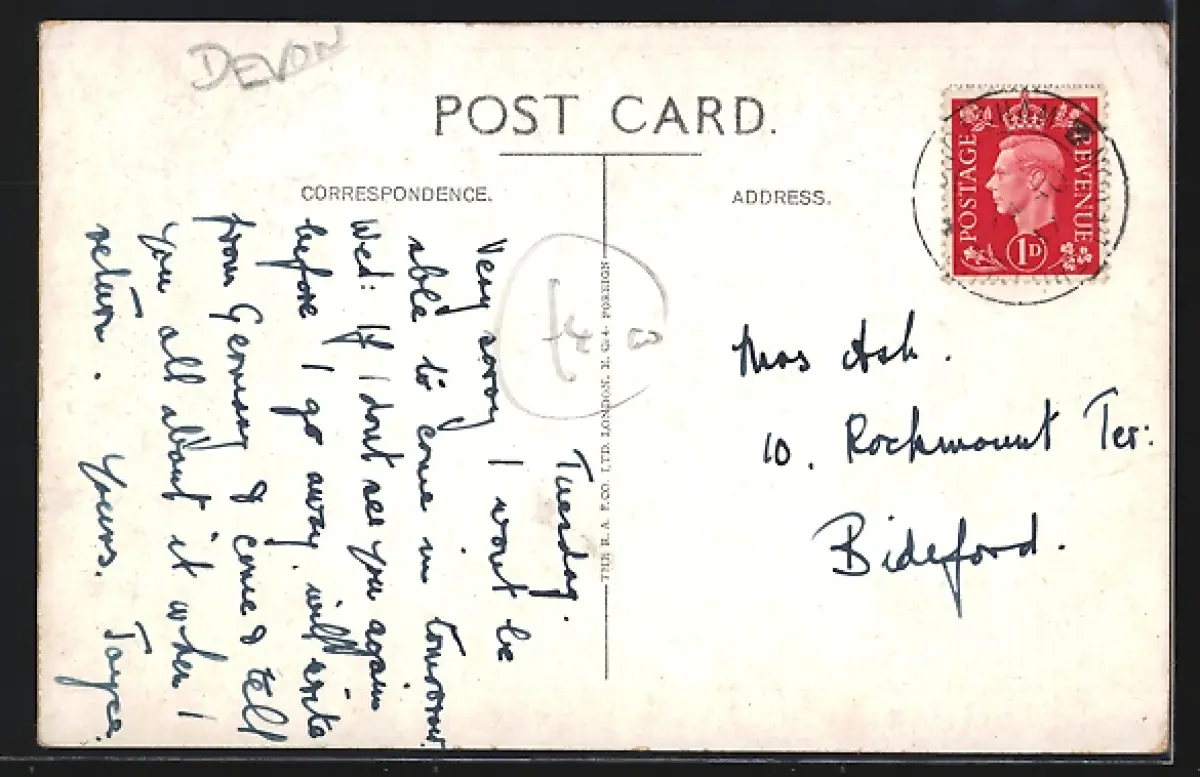 DEVON
POST CARD.
CORRESPONDENCE.
ADDRESS.
POSTAGE
REVENUE
1D
Tuesday.
Very sorry I wont be
able to come in tomorrow
Wed: If I dont see you again
before I go away, will write
from Germany & come & tell
you all about it when I
return. Yours. Joyce.
Mrs Ash.
10. Rockmount Ter:
Bideford.
THE R. A. P. CO. LTD. LONDON. E.C.4. FOREIGN